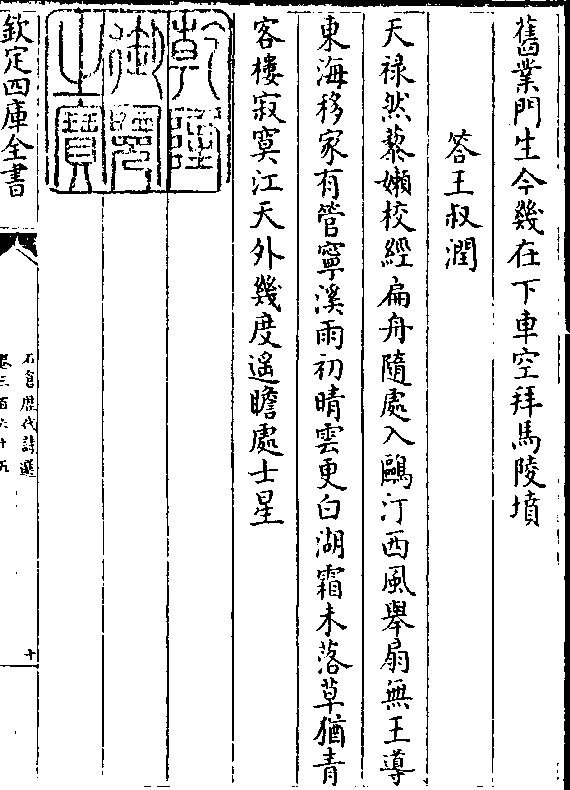 舊業門生今幾在下車空拜馬陵墳
答王叔潤
天禄然藜嬾校經扁舟隨處入鷗汀西風舉扇無王導
東海移家有管寧溪雨初晴雲更白湖霜未落草猶青
客樓寂寞江天外幾度遥瞻處士星
乾隆御覽之寶
欽定四庫全書
石倉歴代詩選
卷三百六十五
十